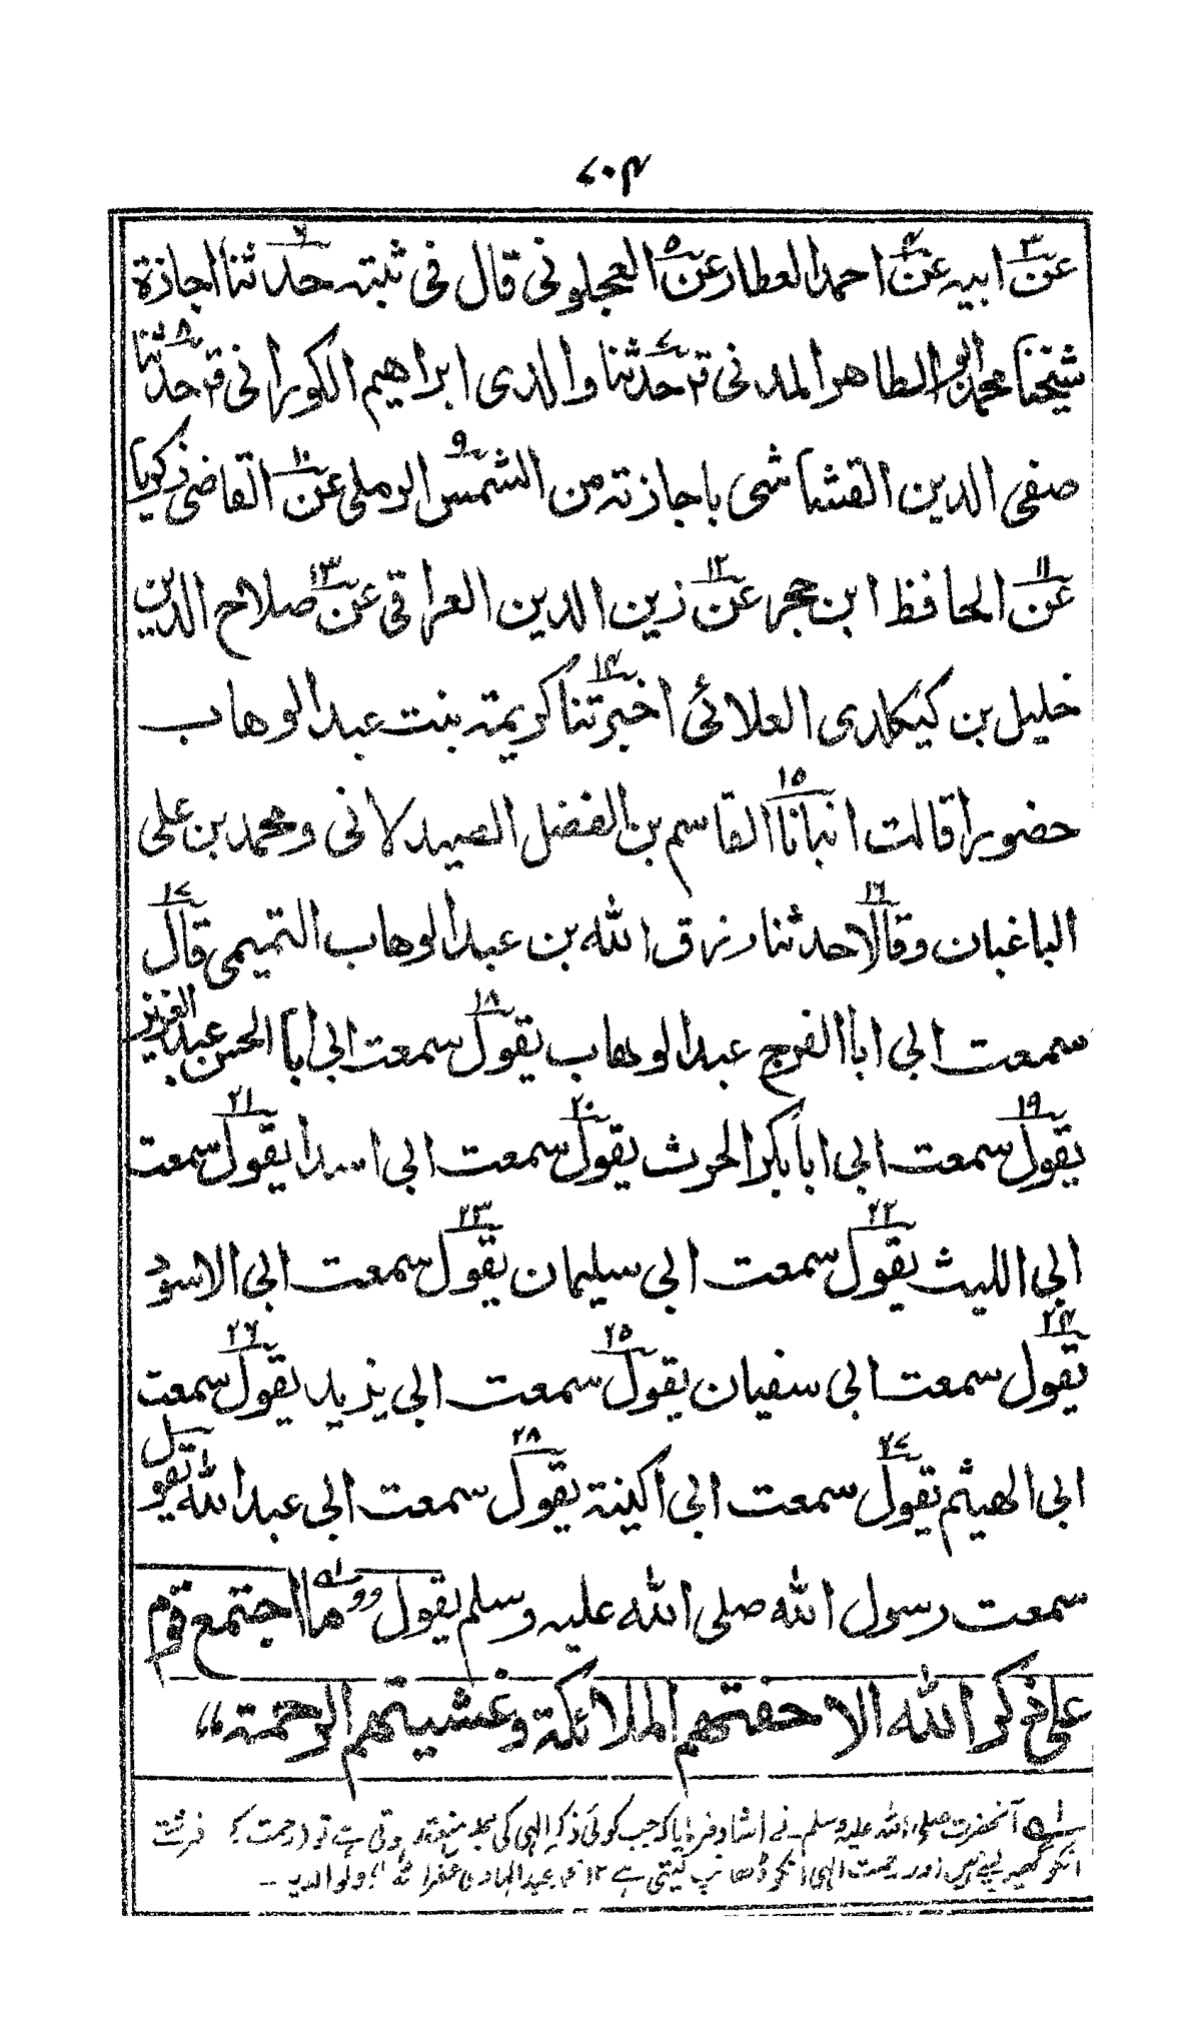 ۷۰۴
عن ابيه عن احمد العطار عن العجلونی قال فی ثبته حدثنا اجازة
شيخنا محمد ابو الطاهر المدنی قر حدثنا والدی ابراهيم الكورانی قر حدثنا
صفی الدين القشاشی باجازته من الشمس الرملی عن القاضی زكريا
عن الحافظ ابن حجر عن زين الدين العراقی عن صلاح الدين
خليل بن كيكلدی العلائی اخبرتنا كريمة بنت عبد الوهاب
حضورا قالت انبانا القاسم بن الفضل الصيدلانی ومحمد بن علی
الباغبان وقالا حدثنا رزق الله بن عبد الوهاب التميمی قال
سمعت ابی ابا الفرج عبد الوهاب يقول سمعت ابی ابا الحسن عبد العزيز
يقول سمعت ابی ابا بكر الحرث يقول سمعت ابی اسدا يقول سمعت
ابی الليث يقول سمعت ابی سليمان يقول سمعت ابی الاسود
يقول سمعت ابی سفيان يقول سمعت ابی يزيد يقول سمعت
ابی الهيثم يقول سمعت ابی اكينة يقول سمعت ابی عبد الله يقول
سمعت رسول الله صلی الله عليه وسلم يقول ‟ما اجتمع قوم
علی ذكر الله الا حفتهم الملائكة وغشيتهم الرحمة”
آنحضرت صلی الله علیه وسلم نے ارشاد فرمایا کہ جب کوئی ذکر الہی کی مجلس منعقد ہوتی ہے تو رحمت کے فرشتے
انکو گھیر لیتے ہیں اور رحمت الہی انکو ڈھانپ لیتی ہے ۱۲ محمد عبدالہادی غفر اللہ لہ ولوالدیہ ۔